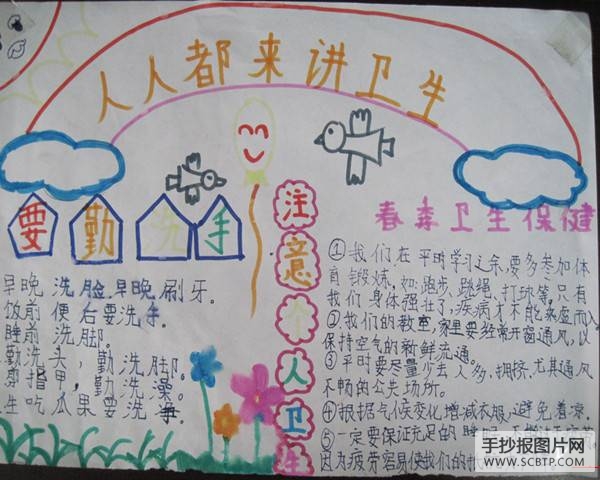 人人都来讲卫生
要勤洗手
早晚洗脸早晚刷牙。
饭前便后要洗手。
睡前洗脚。
勤洗头,勤洗脚。
剪指甲,勤洗澡。
生吃瓜果要洗净
注意个人卫生
春季卫生保健
①我们在平时学习之余,要多参加体
育锻炼,如:跑步、跳绳、打球等,只有
我们身体强壮了,疾病才不能乘虚而入
②我们的教室,家里要经常开窗通风,以
保持空气的新鲜流通。
③平时要尽量少去人多、拥挤、尤其通风
不畅的公共场所。
④根据气候变化增减衣服,避免着凉。
⑤一定要保证充足的睡眠
因为疲劳容易使我们的
手抄报图片网
WWW.SCBTP.COM